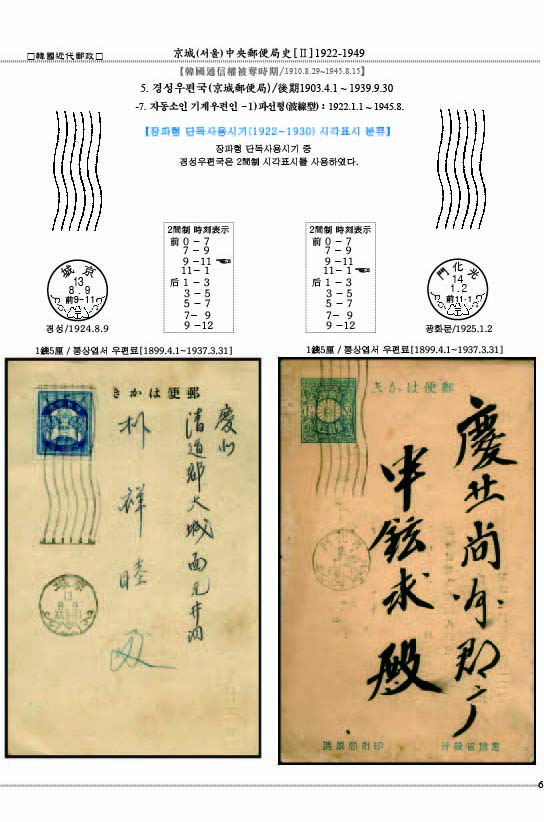 □韓國近代郵政□
京城(서울)中央郵便局史[Ⅱ]1922-1949
【韓國通信權被奪時期/1910.8.29~1945.8.15】
5. 경성우편국(京城郵便局)/後期1903.4.1 ~ 1939.9.30
-7. 자동소인 기계우편인 -1)파선형(波線型) : 1922.1.1 ~ 1945.8.
【장파형 단독사용시기(1922-1930) 시각표시 분류】
장파형 단독사용시기 중
경성우편국은 2間制 시각표시를 사용하였다.
2間制 時刻表示
前 0 - 7
7 - 9
9 -11
11- 1
后 1 - 3
3 - 5
5 - 7
7- 9
9 -12
2間制 時刻表示
前 0 - 7
7 - 9
9 -11
11- 1
后 1 - 3
3 - 5
5 - 7
7- 9
9 -12
京城
13
8.9
前9-11
경성/1924.8.9
光化門
14
1.2
前11-1
광화문/1925.1.2
1錢5厘 / 통상엽서 우편료[1899.4.1~1937.3.31]
1錢5厘 / 통상엽서 우편료[1899.4.1~1937.3.31]
郵便はかき
慶北
清道郡大城面元井洞
朴祥睦
13
8.9
郵便はかき
慶北尚州郡
申鉉求殿
印刷局製造
逓信省発行
6